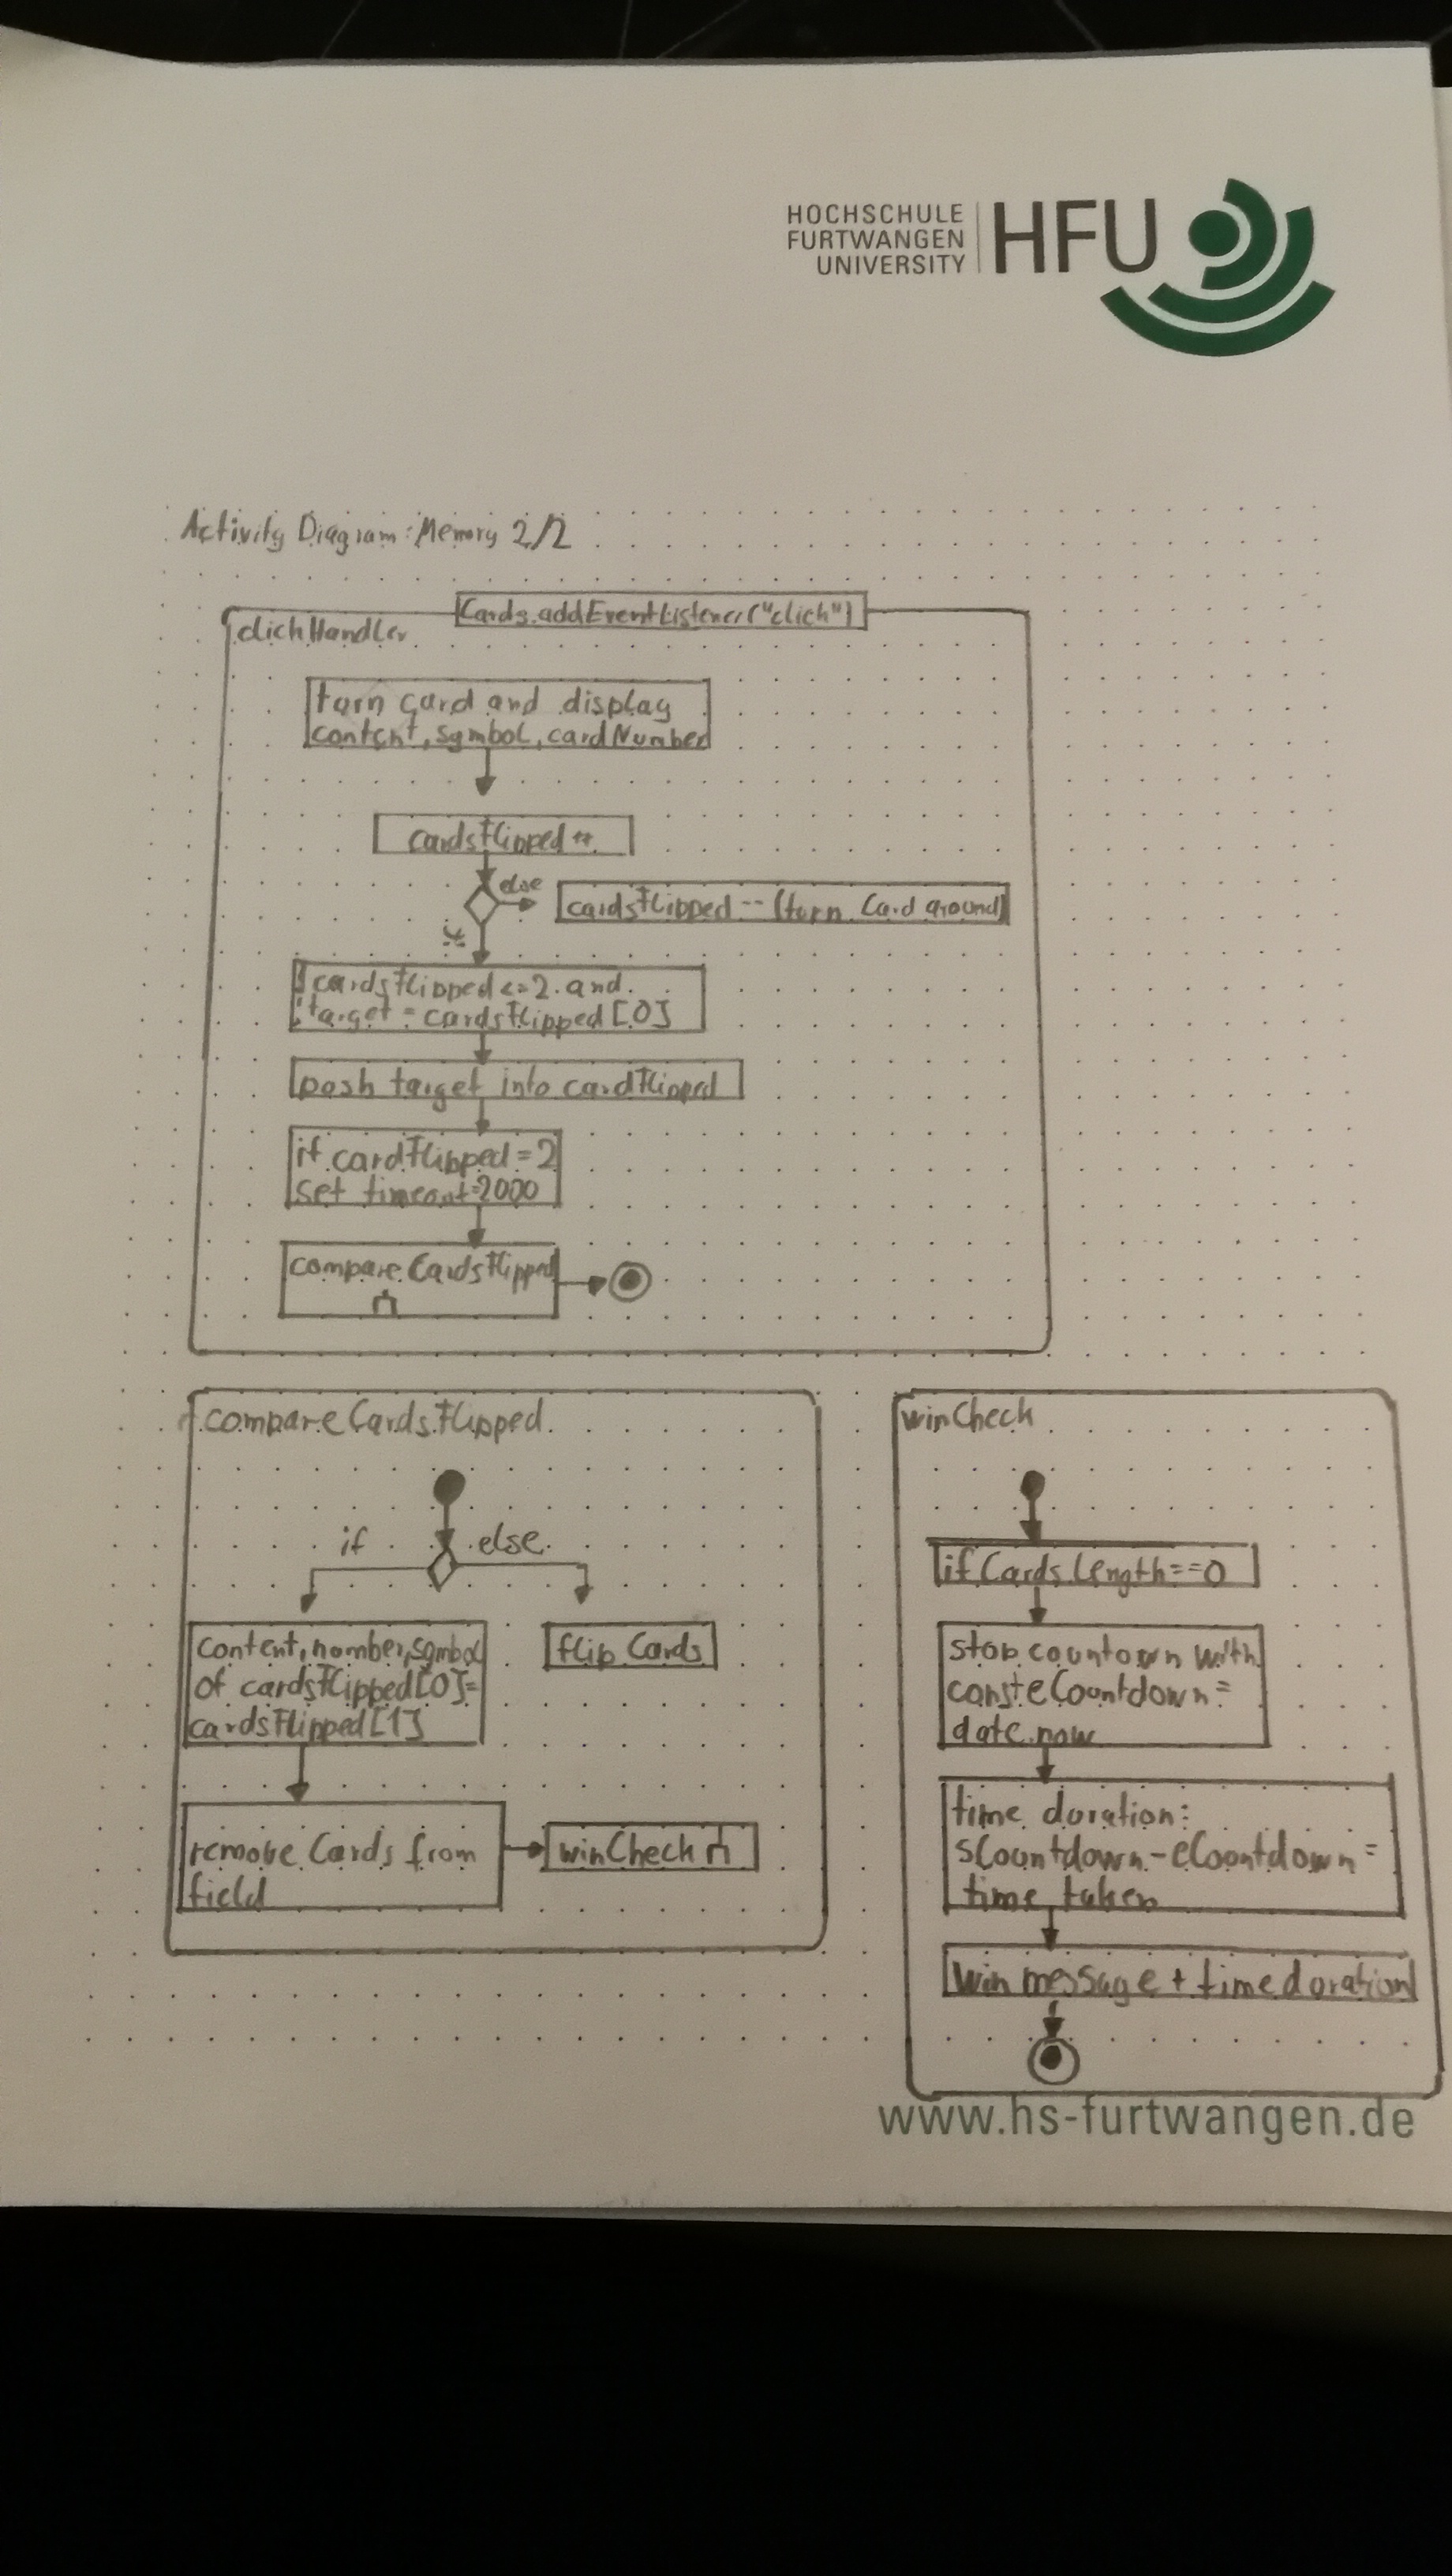 HOCHSCHULE
FURTWANGEN
UNIVERSITY
HFU
Activity Diagram: Memory 2/2
Cards.addEventListener("click")
clickHandler
turn card and display
content, symbol, cardNumber
cardsFlipped++
else
cardsFlipped-- (turn Card around)
if
cardsFlipped<=2 and
target = cardsFlipped[0]
push target into cardFlipped
if cardFlipped=2
set timeout=2000
compareCardsFlipped
compareCardsFlipped
if
else
content, number, symbol
of cardsFlipped[0]=
cardsFlipped[1]
flip Cards
remove Cards from
field
winCheck
winCheck
if Cards.length==0
stop countown with
const eCountdown=
date.now
time duration:
sCountdown-eCountdown=
time taken
Win message + time duration
www.hs-furtwangen.de